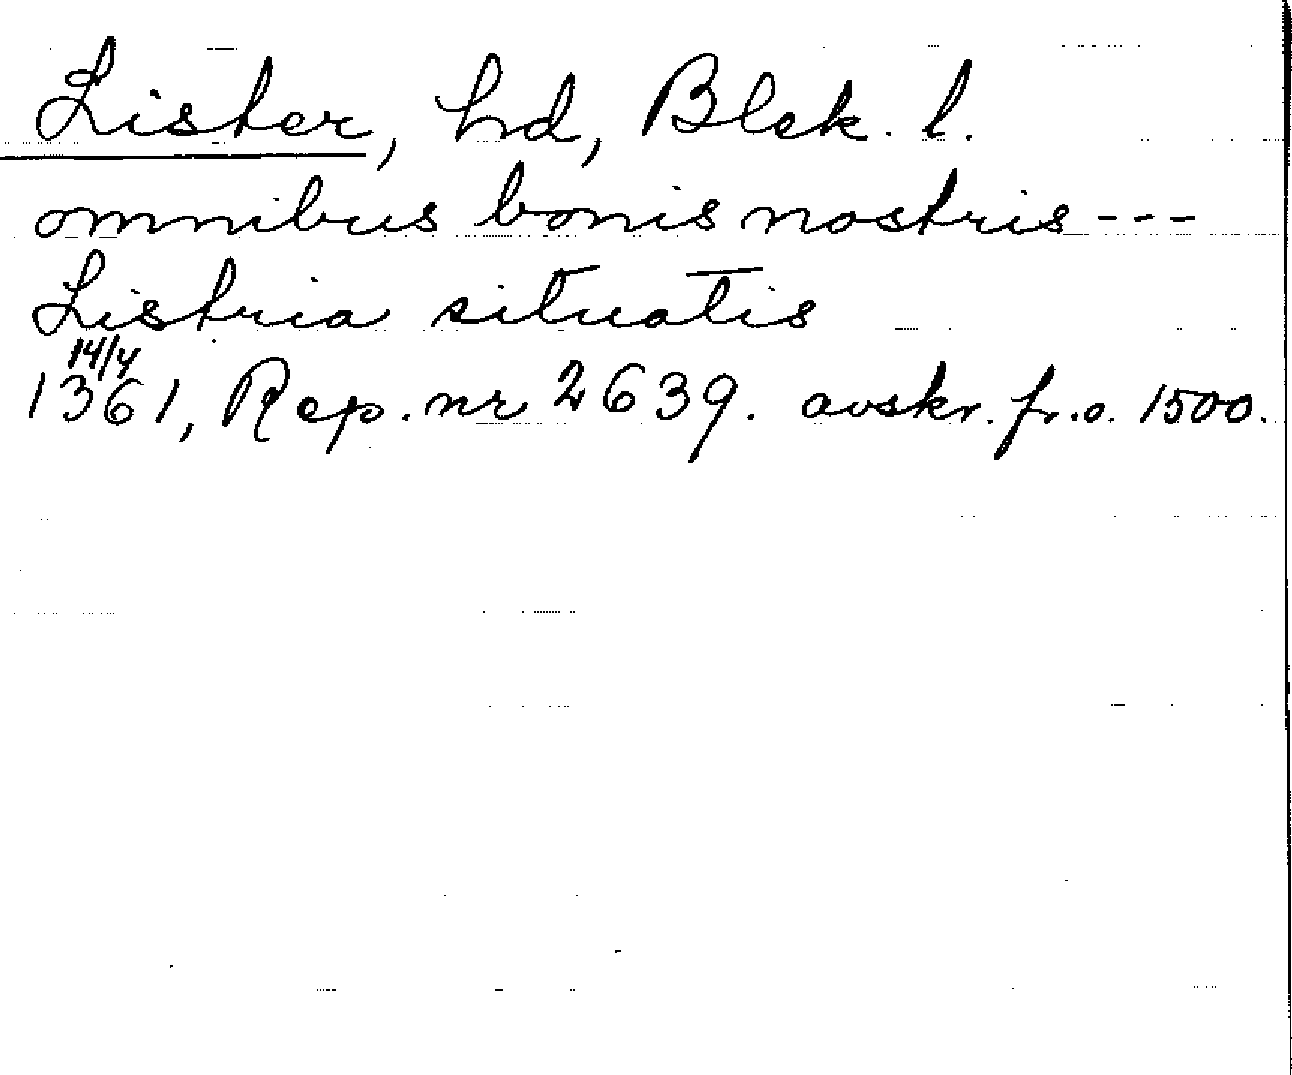 Lister, hd, Blek. l.
omnibus bonis nostris ---
Listria situatis
14/4
1361, Rep. nr 2639. avskr. fr. o. 1500.